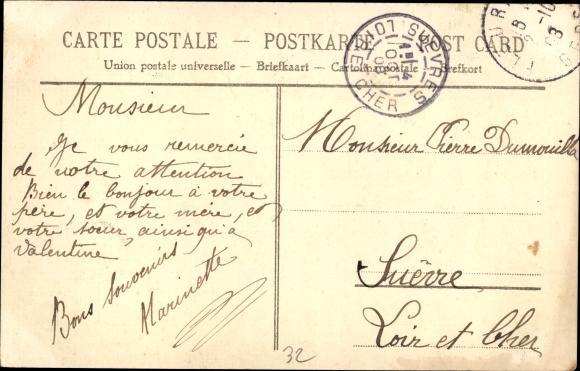 CARTE POSTALE — POSTKARTE — POST CARD
Union postale universelle — Briefkaart — Cartolina postale — Brefkort
SUÈVRES LOIR-ET-CHER
Monsieur
Je vous remercie
de votre attention
Bien le bonjour à votre
père, et votre mère, et
votre soeur, ainsi qu'à
Valentine
Bons souvenirs
Marinette
Monsieur Pierre Dumouilla
Suèvre
Loir et Cher
32